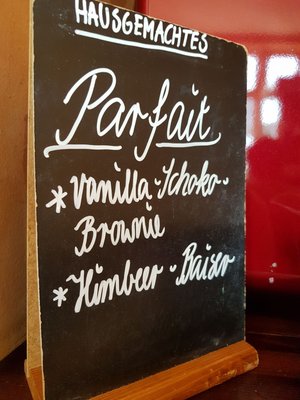 HAUSGEMACHTES
Parfait
*Vanilla-Schoko-
Brownie
*Himbeer-Baiser